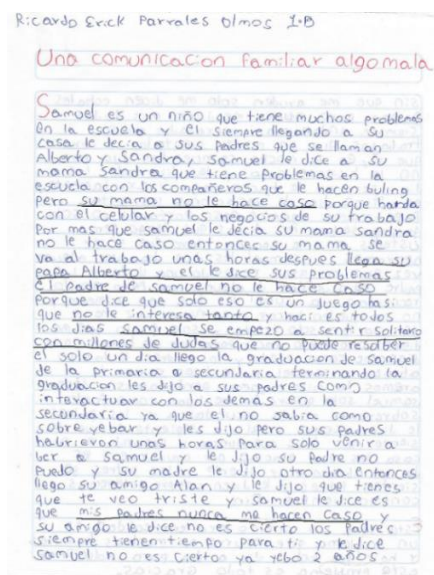 Ricardo Erick Parrales Olmos 1-B
Una comunicacion familiar algo mala
Samuel es un niño que tiene muchos problemas
en la escuela y el siempre llegando a su
casa le decia a sus padres que se llaman
Alberto y Sandra, samuel le dice a su
mama Sandra que tiene problemas en la
escuela con los compañeros que le hacen buling
pero su mama no le hace caso porque handa
con el celular y los negocios de su trabajo
Por mas que samuel le decia su mama sandra
no le hace caso entonces su mama se
va al trabajo unas horas despues llega su
papa Alberto y el le dice sus problemas
el padre de samuel no le hace caso
Porque dice que solo eso es un juego has
que no le interesa tanto y haci es todos
los dias samuel se empezo a sentir solitario
con millones de dudas que no puede resolber
el solo un dia llego la graduacion de samuel
de la primaria a secundaria terminando la
graduacion les dijo a sus padres como
interactuar con los demas en la
secundaria ya que el no sabia como
sobre yebar y les dijo pero sus padres
habrieron unas horas para solo venir a
ber a samuel y le dijo su padre no
puedo y su madre le dijo otro dia entonces
llego su amigo Alan y le dijo que tienes
que te veo triste y samuel le dice es
que mis padres nunca me hacen caso y
su amigo le dice no es cierto los padres
siempre tienen tiempo para ti y le dice
samuel no es cierto ya yebo 2 años